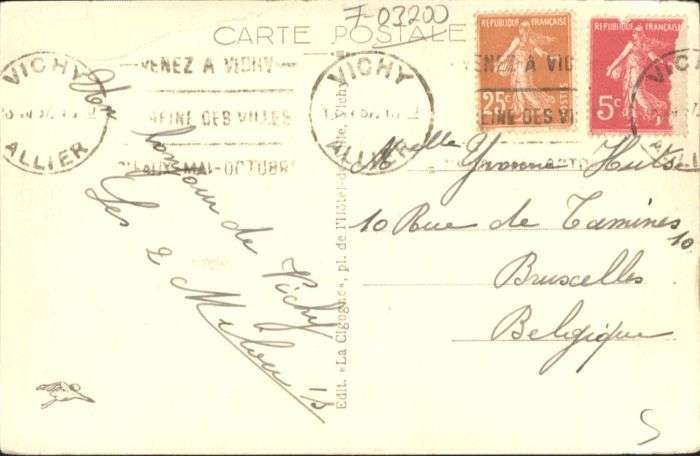 7-03200
CARTE POSTALE
RÉPUBLIQUE FRANÇAISE
25c
RÉPUBLIQUE FRANÇAISE
5c
VICHY
ALLIER
VENEZ A VICHY
REINE DES VILLES
D'EAUX-MAI-OCTOBRE
VICHY
ALLIER
VENEZ A VIC
REINE DES VI
Bonjour de Vichy
Les 2
Edit. «La Cigogne», pl. de l'Hôtel-de-Ville, Vichy
Melle Yvonne
10 Rue de Tamines 10
Bruxelles
Belgique
5